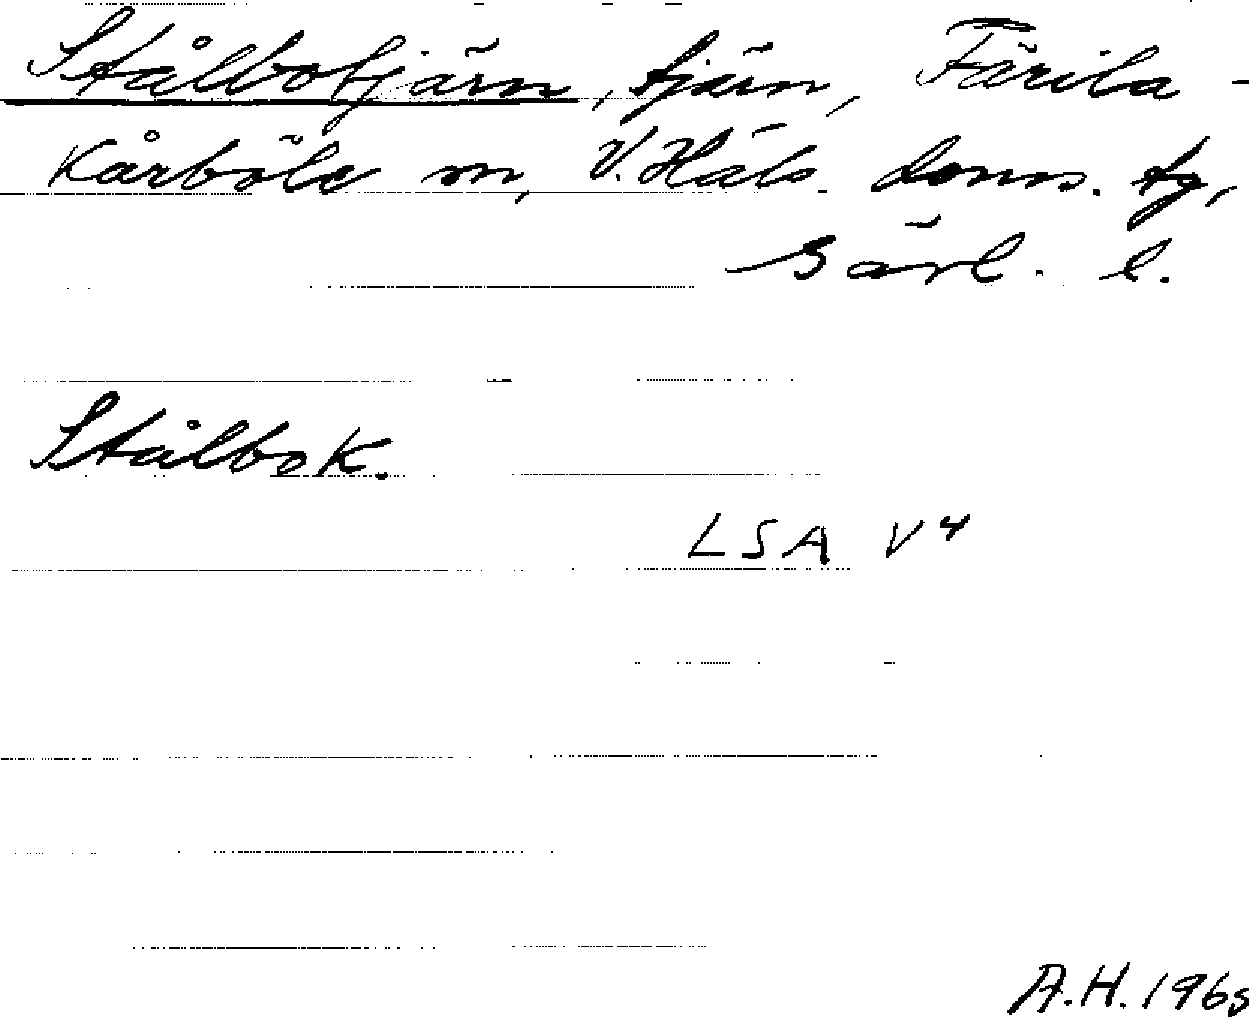 Stålbotjärn, tjärn, Färila-
Kårböle sn, V. Häls. doms. tg,
Gävl. l.
Stålbo K.
LSA V4
A.H. 1965